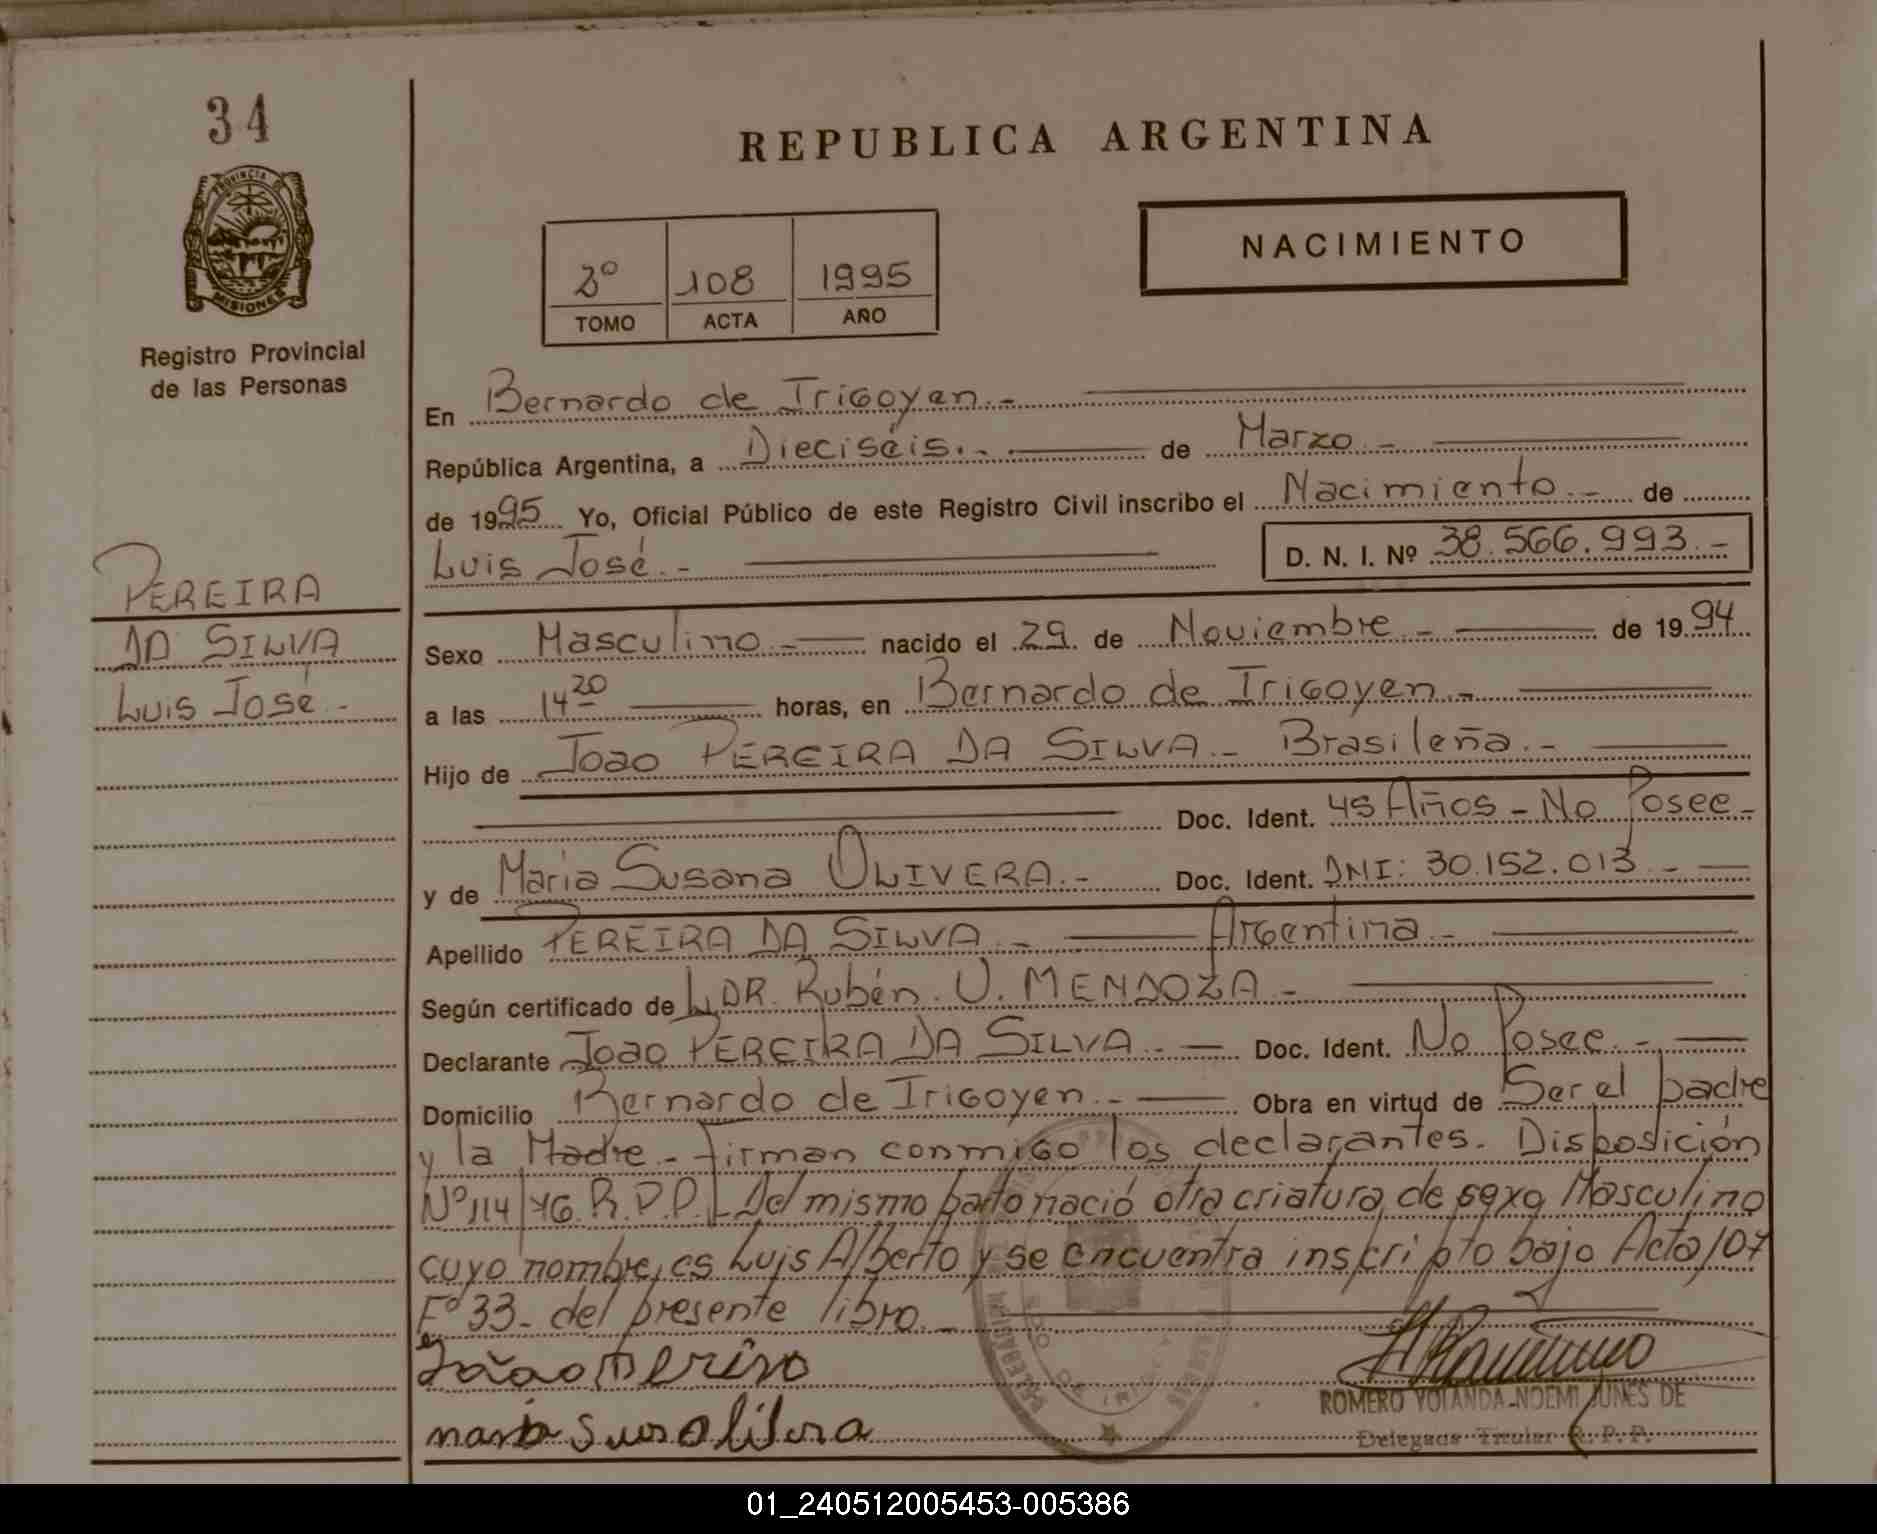 34
PROVINCIA DE
MISIONES
Registro Provincial
de las Personas
PEREIRA
DA SILVA
Luis José.-
REPUBLICA ARGENTINA
NACIMIENTO
2º 108 1995
TOMO ACTA AÑO
En Bernardo de Irigoyen.-
República Argentina, a Dieciséis.- de Marzo.-
de 1995 Yo, Oficial Público de este Registro Civil inscribo el Nacimiento.- de
Luis José.- D. N. I. Nº 38.566.993.-
Sexo Masculino.- nacido el 29 de Noviembre.- de 1994
a las 14 20 horas, en Bernardo de Irigoyen.-
Hijo de Joao PEREIRA DA SILVA.- Brasileña.-
Doc. Ident. 45 Años - No Posee-
y de Maria Susana OLIVERA.- Doc. Ident. DNI: 30.152.013.-
Apellido PEREIRA DA SILVA.- Argentina.-
Según certificado de L DR. Rubén. U. MENDOZA.-
Declarante Joao PEREIRA DA SILVA.- Doc. Ident. No Posee.-
Domicilio Bernardo de Irigoyen.- Obra en virtud de Ser el padre
y la Madre.- firman conmigo los declarantes. Disposición
Nº 114/76. R.P.P. Del mismo parto nació otra criatura de sexo Masculino
cuyo nombre es Luis Alberto y se encuentra inscripto bajo Acta 107
Fº 33- del presente libro.-
João
maria
ROMERO YOLANDA NOEMI JUNES DE
Delegada Titular R. P. P.
01_240512005453-005386